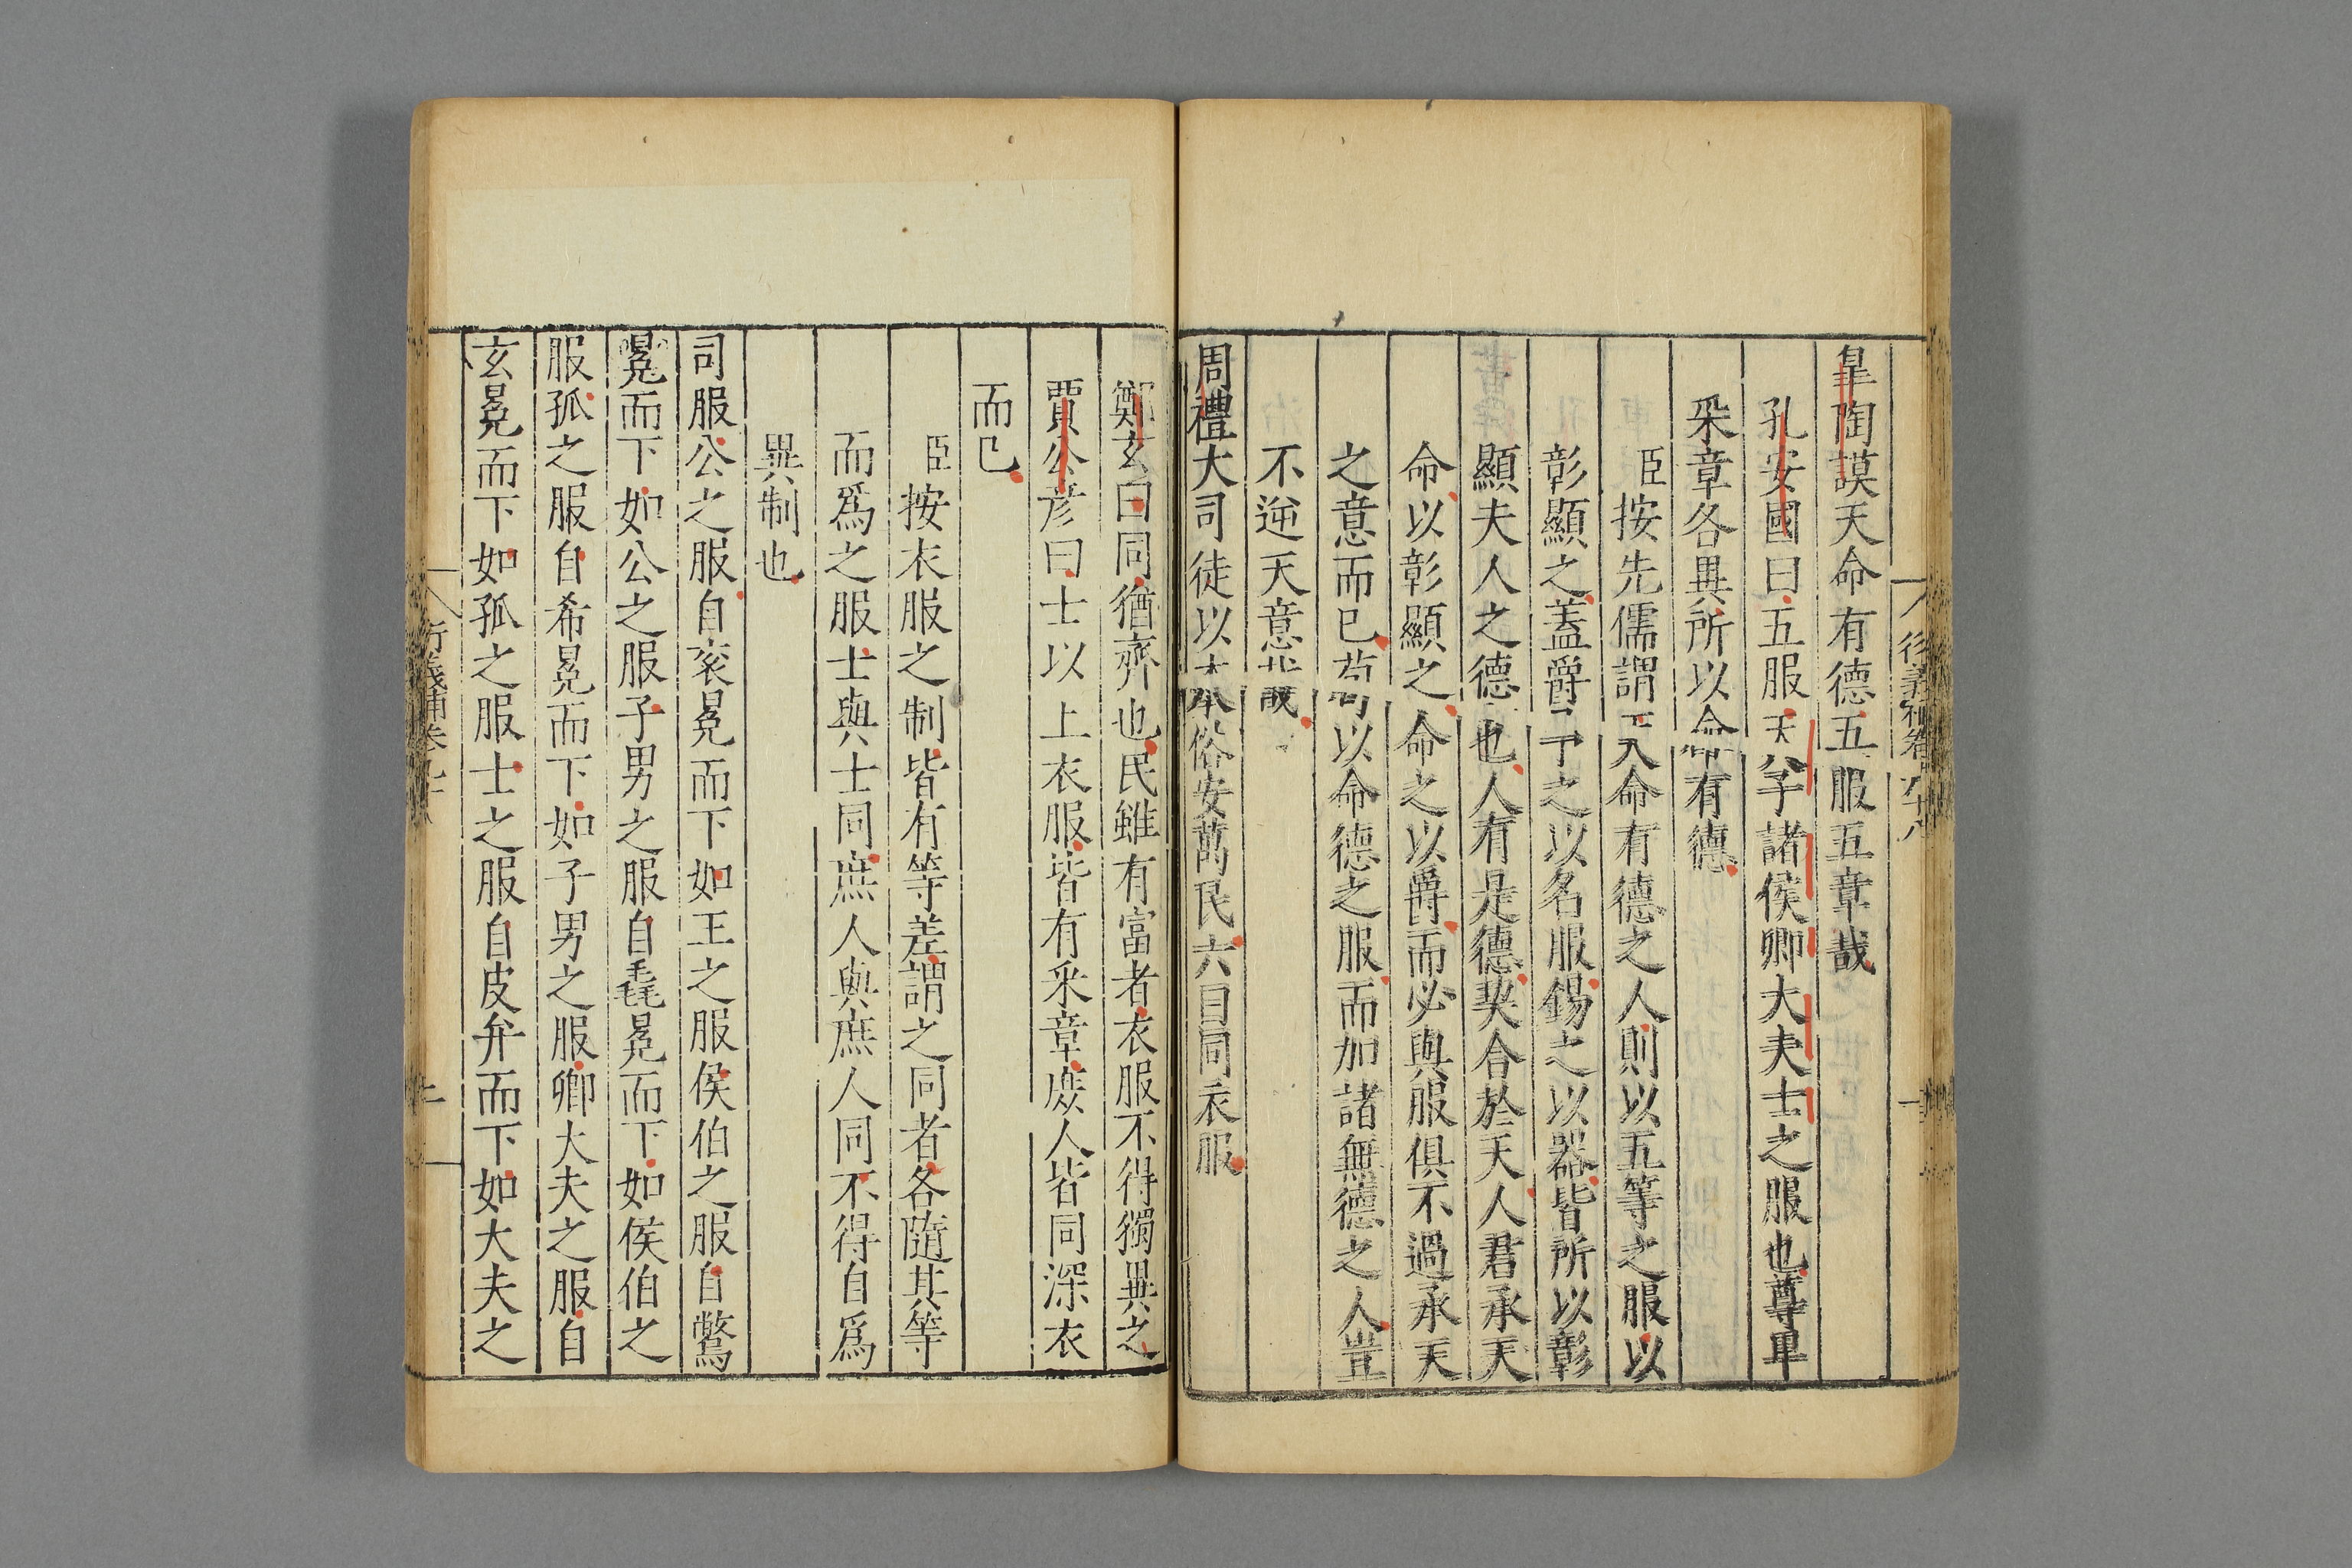 皐陶謨天命有德五服五章哉
孔安國曰五服天子諸侯卿大夫士之服也尊卑
采章各異所以命有德
臣按先儒謂天命有德之人則以五等之服以
彰顯之蓋爵予之以名服錫之以器皆所以彰
顯夫人之德也人有是德契合於天人君承天
命以彰顯之命之以爵而必與服俱不過承天
之意而已苟以命德之服而加諸無德之人豈
不逆天意哉
周禮大司徒以本俗安萬民六曰同衣服
鄭玄曰同猶齊也民雖有富者衣服不得獨異之
賈公彦曰士以上衣服皆有采章庶人皆同深衣
而已
臣按衣服之制皆有等差謂之同者各隨其等
而爲之服士與士同庶人與庶人同不得自爲
異制也
司服公之服自衮冕而下如王之服侯伯之服自鷩
冕而下如公之服子男之服自毳冕而下如侯伯之
服孤之服自希冕而下如子男之服卿大夫之服自
玄冕而下如孤之服士之服自皮弁而下如大夫之